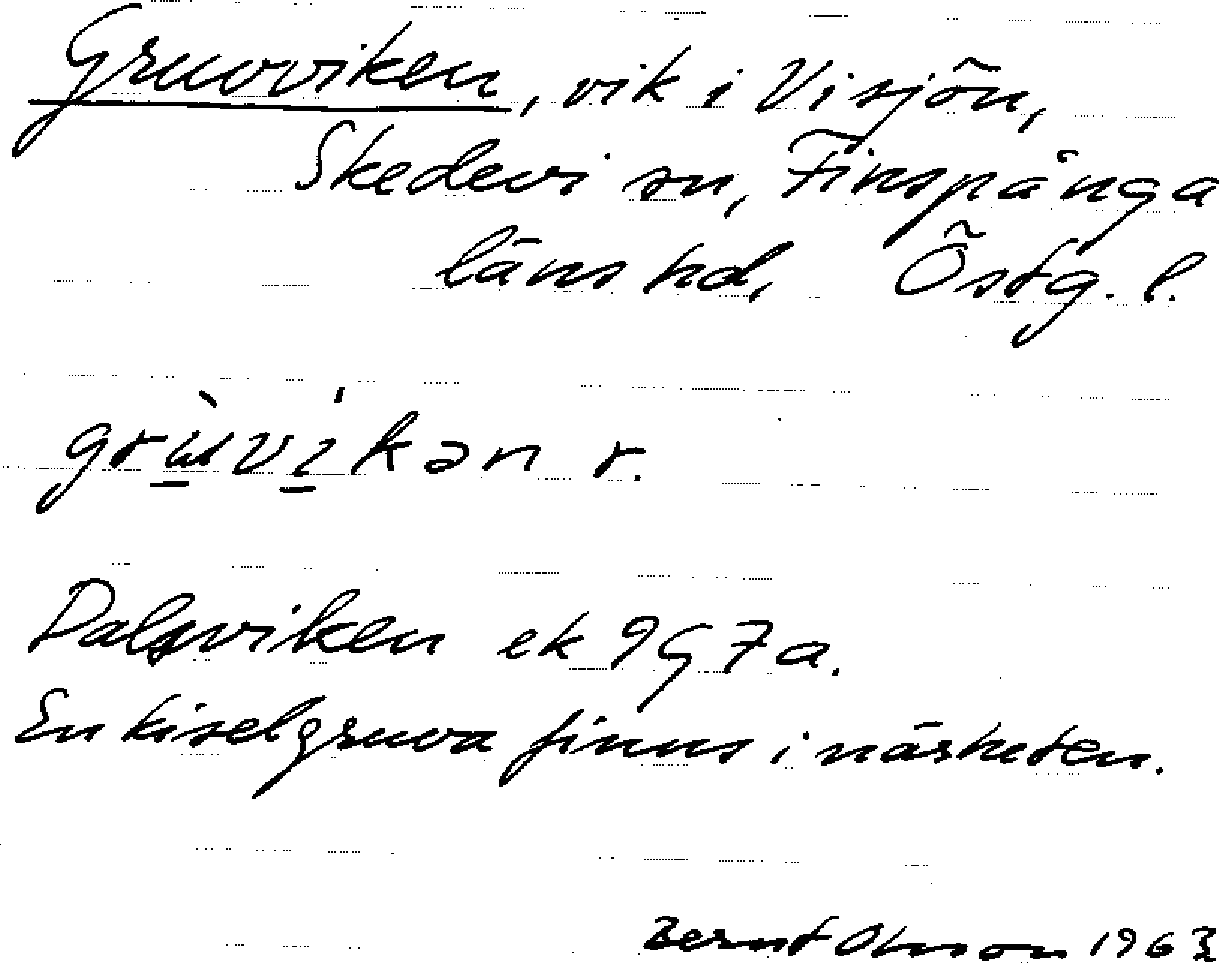 Gruvviken, vik i Visjön,
Skedevi sn, Finspånga
läns hd, Östg. l.
grùvi̇kən r.
Dalsviken ek 9G7a.
En kiselgruva finns i närheten.
Bernt Olsson 1963